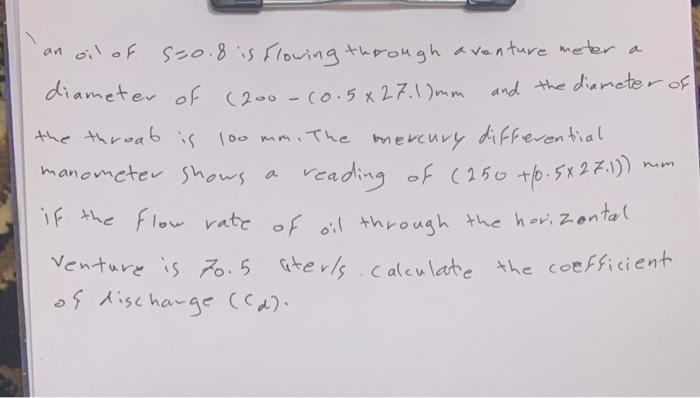 an oil of S=0.8 is Flowing through a venture meter a
diameter of (200 - (0.5 x 27.1)mm and the diameter of
the throat is 100 mm. The mercury differential
manometer shows a reading of (250 + (0.5x27.1)) mm
if the flow rate of oil through the horizontal
Venture is 70.5 liter/s. calculate the coefficient
of discharge (Cd).